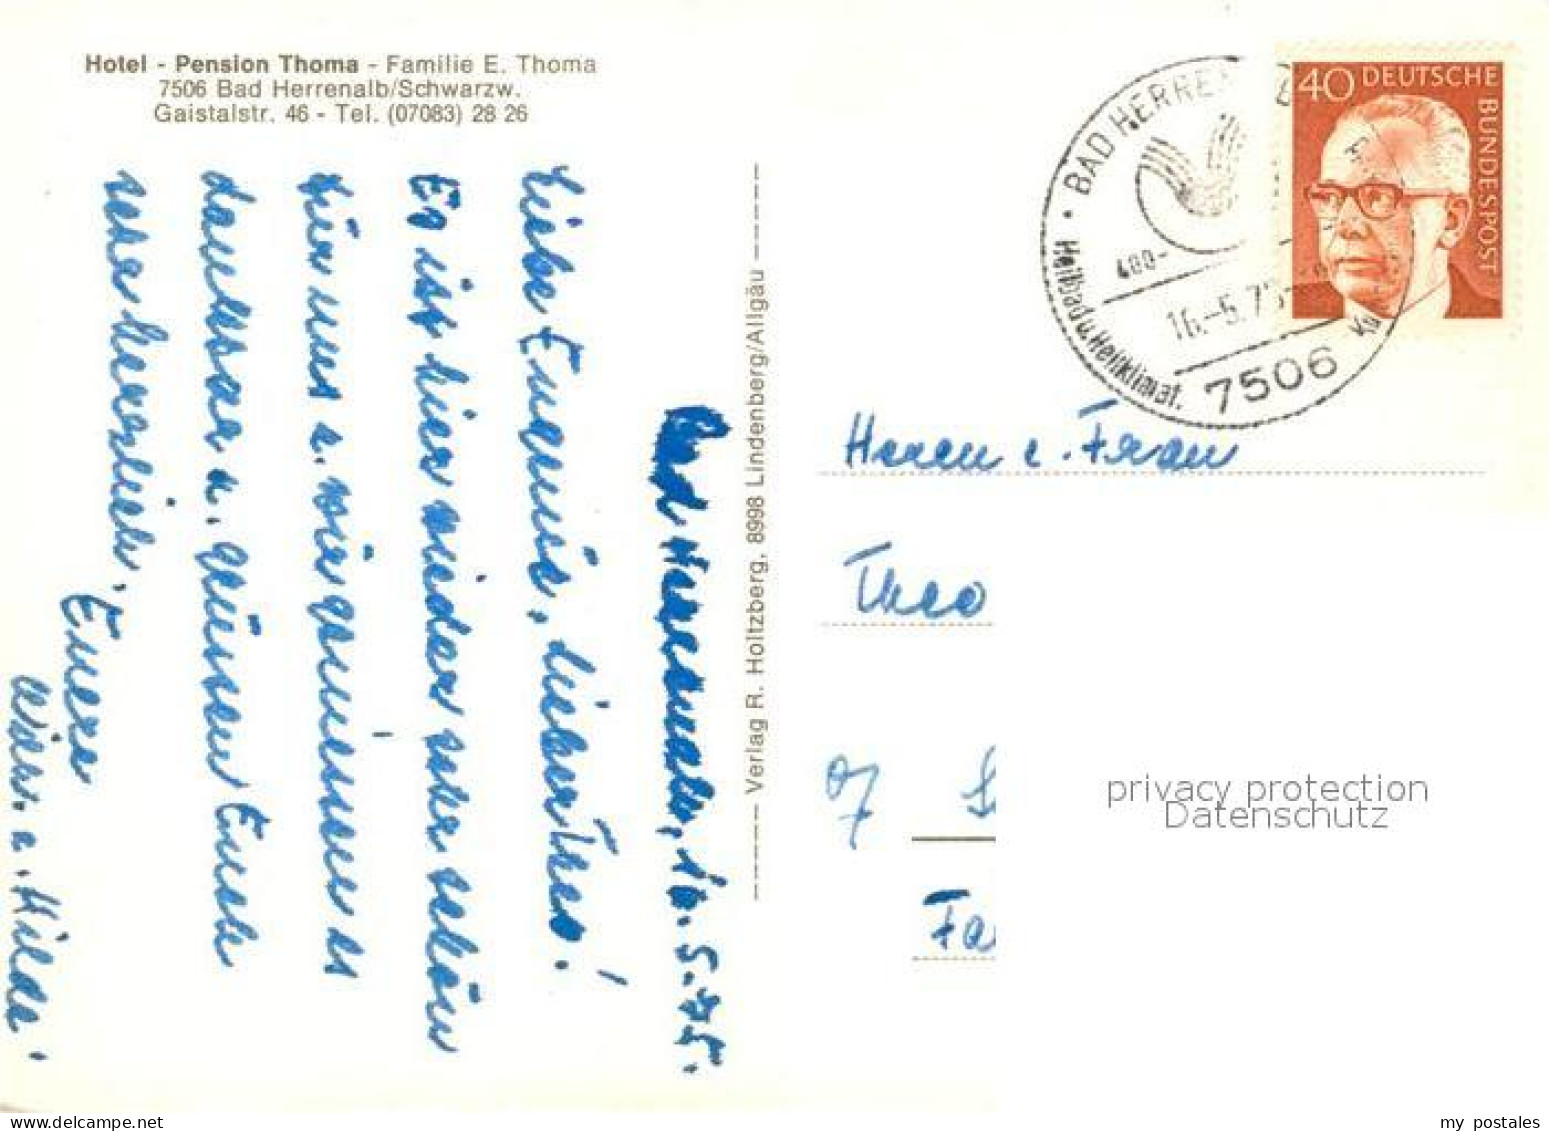 Hotel - Pension Thoma - Familie E. Thoma
7506 Bad Herrenalb/Schwarzw.
Gaistalstr. 46 - Tel. (07083) 28 26
Bad Herrenalb, 16.5.75.
Liebe Emmi, lieber Theo!
Es ist hier wieder sehr schön
für uns u. wir genießen es
dankbar u. grüssen Euch
sehr herzlich.
Eure
u. Hilda.
Verlag R. Holtzberg, 8998 Lindenberg/Allgäu
BAD HERREN
400-
16.-5.75
Heilbad u. Heilklimat.
7506
40 DEUTSCHE
BUNDESPOST
Herrn u. Frau
Theo
Fa
privacy protection
Datenschutz
my postales